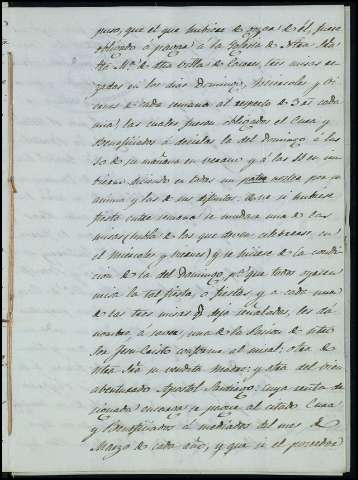 puso, que el que hubiese de gozar de él, fuese
obligado á pagar á la Iglesia de Ntra Sra
Sta Mª de dha Villa de Caceres, tres misas re
zadas en los dias Domingo, Miércoles y Vi
ernes de cada semana al respecto de 2 rs cada
una; las cuales fuesen obligados el Cura y
Beneficiados á decirlas la del domingo á las
de su mañana en verano y á las 11 en in
bierno diciendo en todos un pater noster por su
anima y las de sus difuntos: que si hubiese
fiesta entre semana se mudara una de las
misas (habla de las que deven celebrarse, en
el miércoles y viernes) y se hiciese de la condi
cion de la del Domingo, pª que todos oyesen
misa la tal fiesta, ó fiestas, y a cada una
de las tres misas qe dejo señaladas, les dá
nombre, á saver, una de la Pasion de ntro
Sor Jesu Cristo conforme al misal: otra de
ntra Sra su vendita madre: y otra del vien
abenturado Apostol Santiago: cuya renta de
signada encarga se pagara al citado Cura
y Beneficiados á mediados del mes de
Marzo de cada año, y que si el poseedor